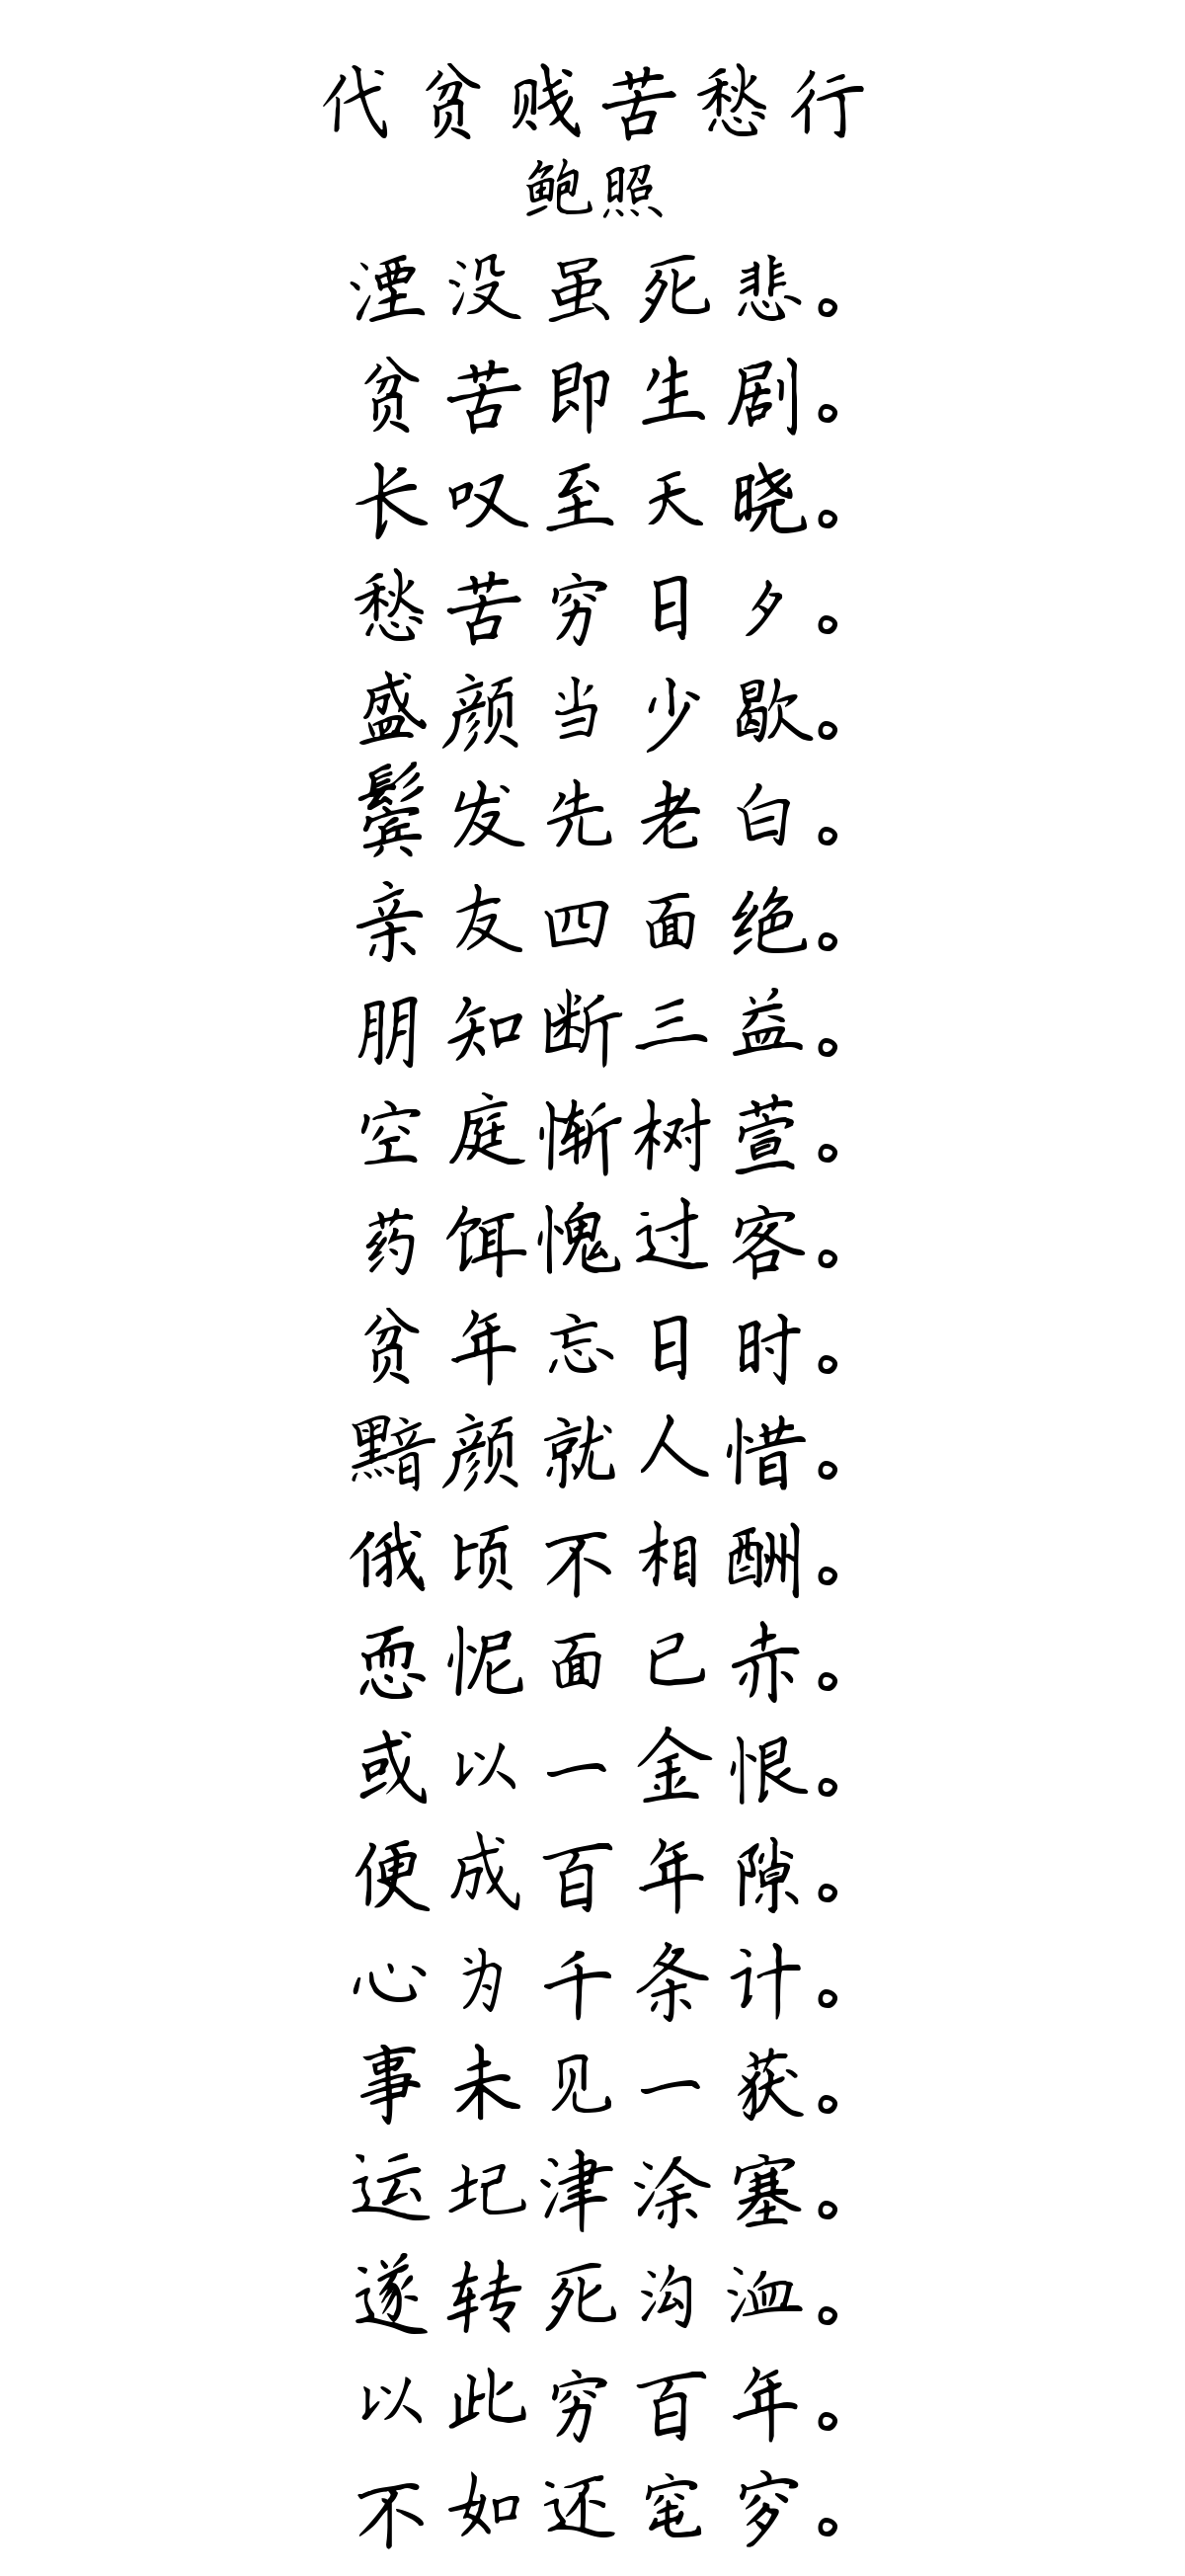 代贫贱苦愁行
鲍照
湮没虽死悲。
贫苦即生剧。
长叹至天晓。
愁苦穷日夕。
盛颜当少歇。
鬓发先老白。
亲友四面绝。
朋知断三益。
空庭惭树萱。
药饵愧过客。
贫年忘日时。
黯颜就人惜。
俄顷不相酬。
恧怩面已赤。
或以一金恨。
便成百年隙。
心为千条计。
事未见一获。
运圮津涂塞。
遂转死沟洫。
以此穷百年。
不如还窀穸。